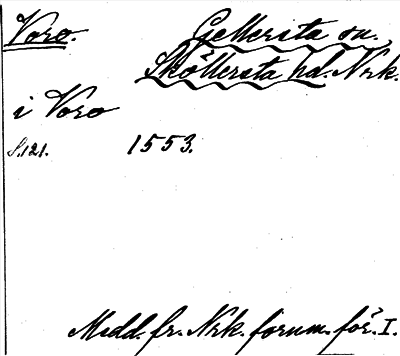 Voro. Gellersta sn.,
Sköllersta hd. Nrk.
i Voro
S.121. 1553.
Medd. fr. Nrk. fornm. för. I.